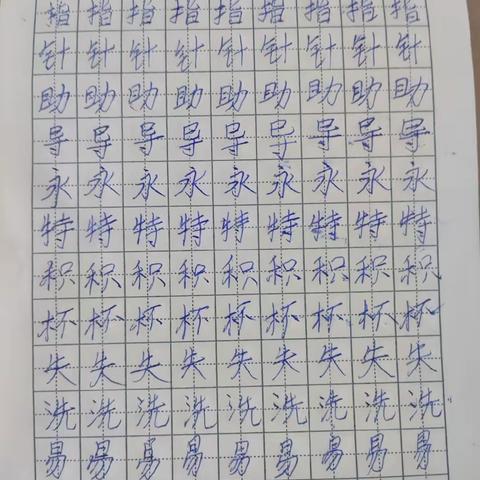 指指指指指指指指指
针针针针针针针针针
助助助助助助助助助
导导导导导导导导导
永永永永永永永永永
特特特特特特特特特
积积积积积积积积积
杯杯杯杯杯杯杯杯杯
失失失失失失失失失
洗洗洗洗洗洗洗洗洗
易易易易易易易易易